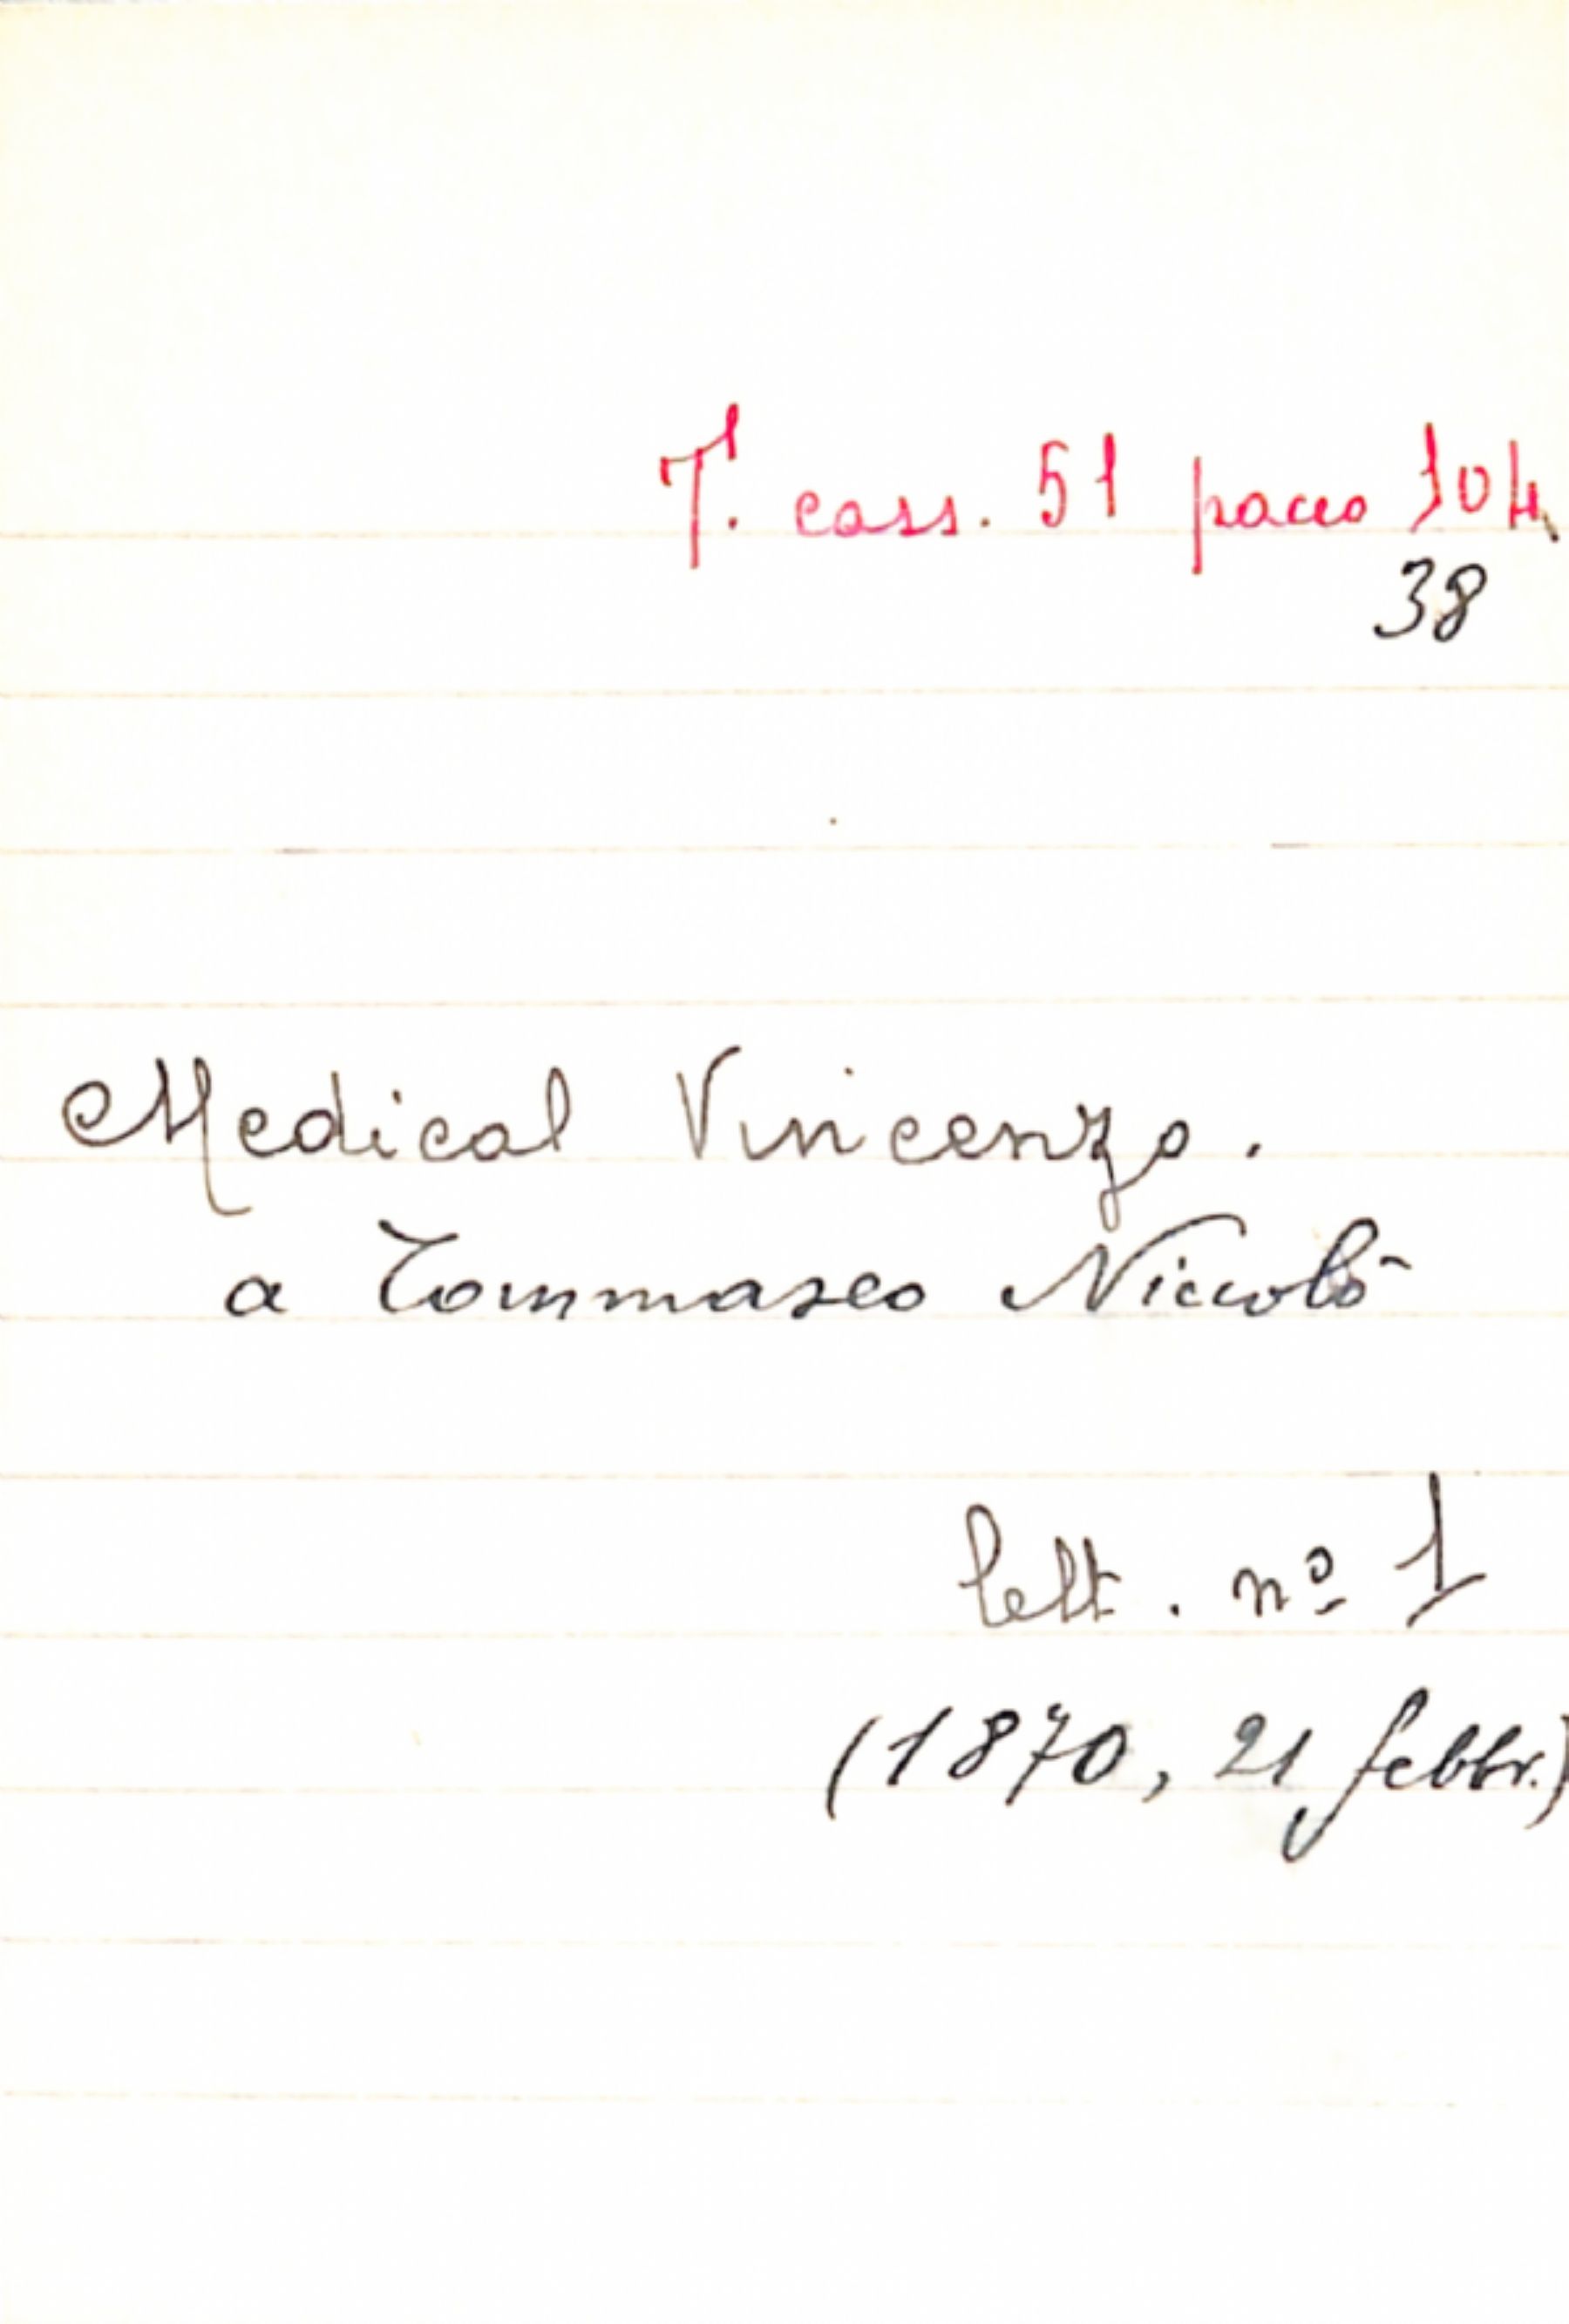 T. cass. 51 pacco 104
38
Medical Vincenzo.
a Tommaseo Niccolò
lett. nº 1
(1870, 21 febbr.)